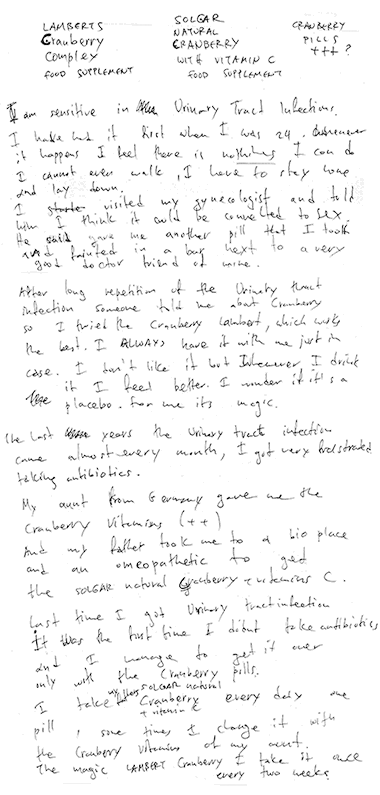 LAMBERTS
Cranberry
Complex
FOOD SUPPLEMENT
SOLGAR
NATURAL
CRANBERRY
WITH VITAMIN C
FOOD SUPPLEMENT
CRANBERRY
PILLS
+++ ?
I am sensitive in Urinary Tract Infections.
I have had it first when I was 24. Whenever
it happens I feel there is nothing I can do
I cannot even walk, I have to stay home
and lay down.
I visited my gynecologist and told
him I think it could be connected to sex.
He said gave me another pill that I took
and fainted in a bar next to a very
good doctor friend of mine.
After long repetition of the Urinary tract
infection someone told me about Cranberry
so I tried the Cranberry Lambert, which works
the best. I ALWAYS have it with me just in
case. I don't like it but Whenever I drink
it I feel better. I wonder if it's a
placebo. For me its magic.
The last years the Urinary tract infection
came almost every month, I got very frustrated
taking antibiotics.
My aunt from Germany gave me the
Cranberry Vitamins (++)
And my father took me to a bio place
and an omeopathetic to get
the SOLGAR natural Cranberry + vitamins C.
Last time I got Urinary tract infection
It was the first time I didnt take antibiotics
and I manage to get it over
only with the Cranberry pills.
I take my SOLGAR natural
Cranberry every day one
+ vitamin C
pill, some times I change it with
the Cranberry vitamins of my aunt.
The magic LAMBERT Cranberry I take it once
every two weeks